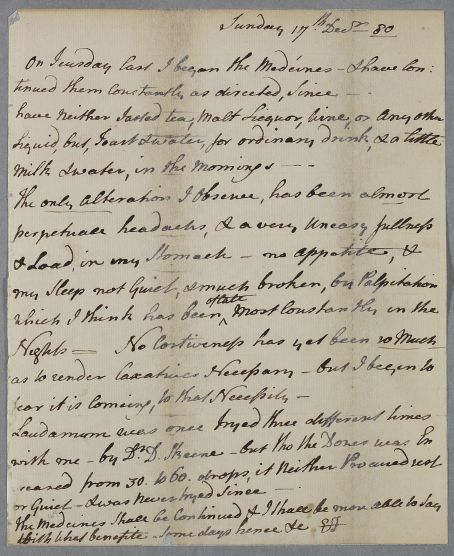 Sunday 17th Decr 80
On Tuesday last I began the Medecines - & have con:
tinued them Constantly as directed, Since -
have neither Tasted tea, Malt Liquor, Wine, or Any other
Liquid, but, Toast & water, for ordinary drink, & a little
Milk & water, in the Mornings - -
The only alteration I Observe, has been almost
perpetuall headachs, & a very Uneasy fullness
& Load, in my Stomach - no appetite, &
my Sleep not Quiet, & much broken, by Palpitation
which I think has been, of late Most Constantly in the
Nights - No Costiveness has yet been so Much
as to render Laxatives Necessary - but I begin to
fear it is comeing, to that Necessity -
Laudanum was once tryed three different times
with me - by Dr. D. Skeene - but tho the Doses was En
creased from 30. to 60. drops, it Neither Procured rest
or Quiet - & was never tryed Since -
The Medecines Shall be Continued & I Shall be more able to Say
With what benefite - Some days hence &c